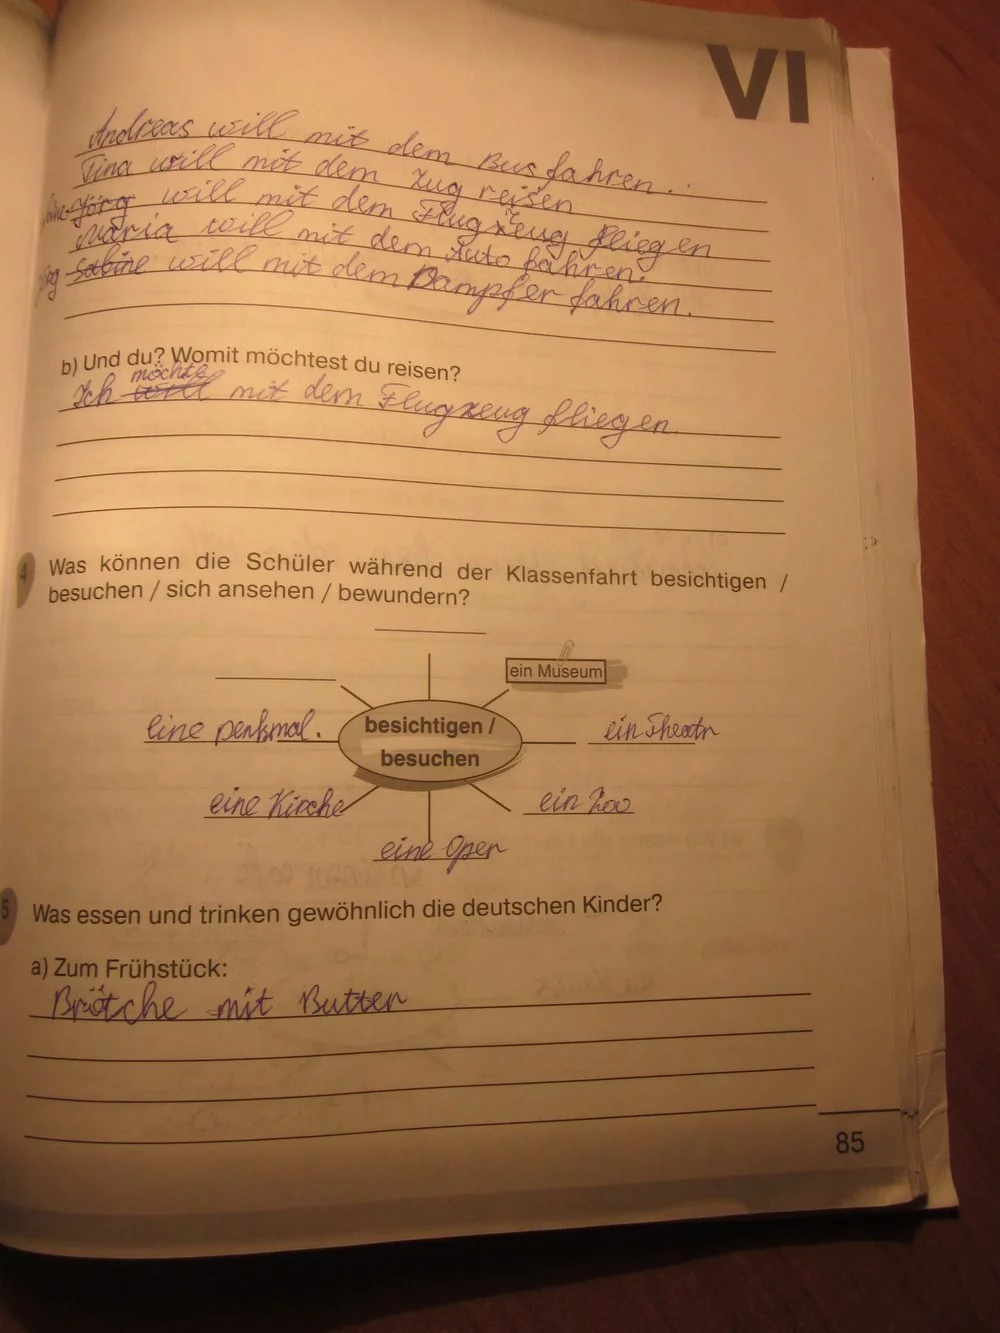 VI
Andreas will mit dem Bus fahren..
Tina will mit dem Zug reisen
Jörg will mit dem Flugzeug fliegen
Maria will mit dem Auto fahren.
Sabine will mit dem Dampfer fahren.
b) Und du? Womit möchtest du reisen?
möchte
Ich will mit dem Flugzeug fliegen
4 Was können die Schüler während der Klassenfahrt besichtigen /
besuchen / sich ansehen / bewundern?
ein Museum
eine Denkmal.
besichtigen /
besuchen
ein Theatr
eine Kirche
ein Zoo
eine Oper
5 Was essen und trinken gewöhnlich die deutschen Kinder?
a) Zum Frühstück:
Brötche mit Butter
85